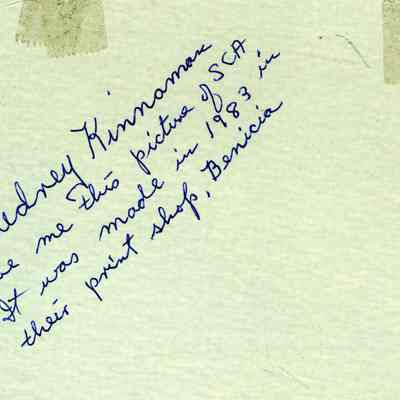 udrey Kinnaman
ve me this picture of SCA
It was made in 1983 in
their print shop, Benicia